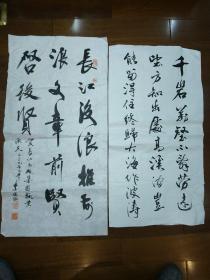 千岩萬壑不辭勞遠
看方知出處高溪澗豈
能留得住終歸大海作波濤
長江後浪推前
浪文章前賢
啓後賢